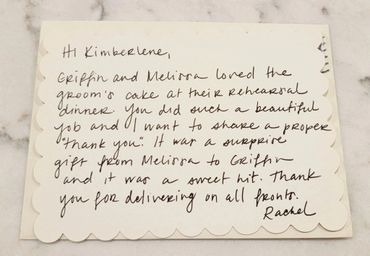 Hi Kimberlene,
Griffin and Melissa loved the
groom's cake at their rehearsal
dinner. You did such a beautiful
job and I want to share a proper
"thank you". It was a surprise
gift from Melissa to Griffin
and it was a sweet hit. Thank
you for delivering on all fronts.
Rachel